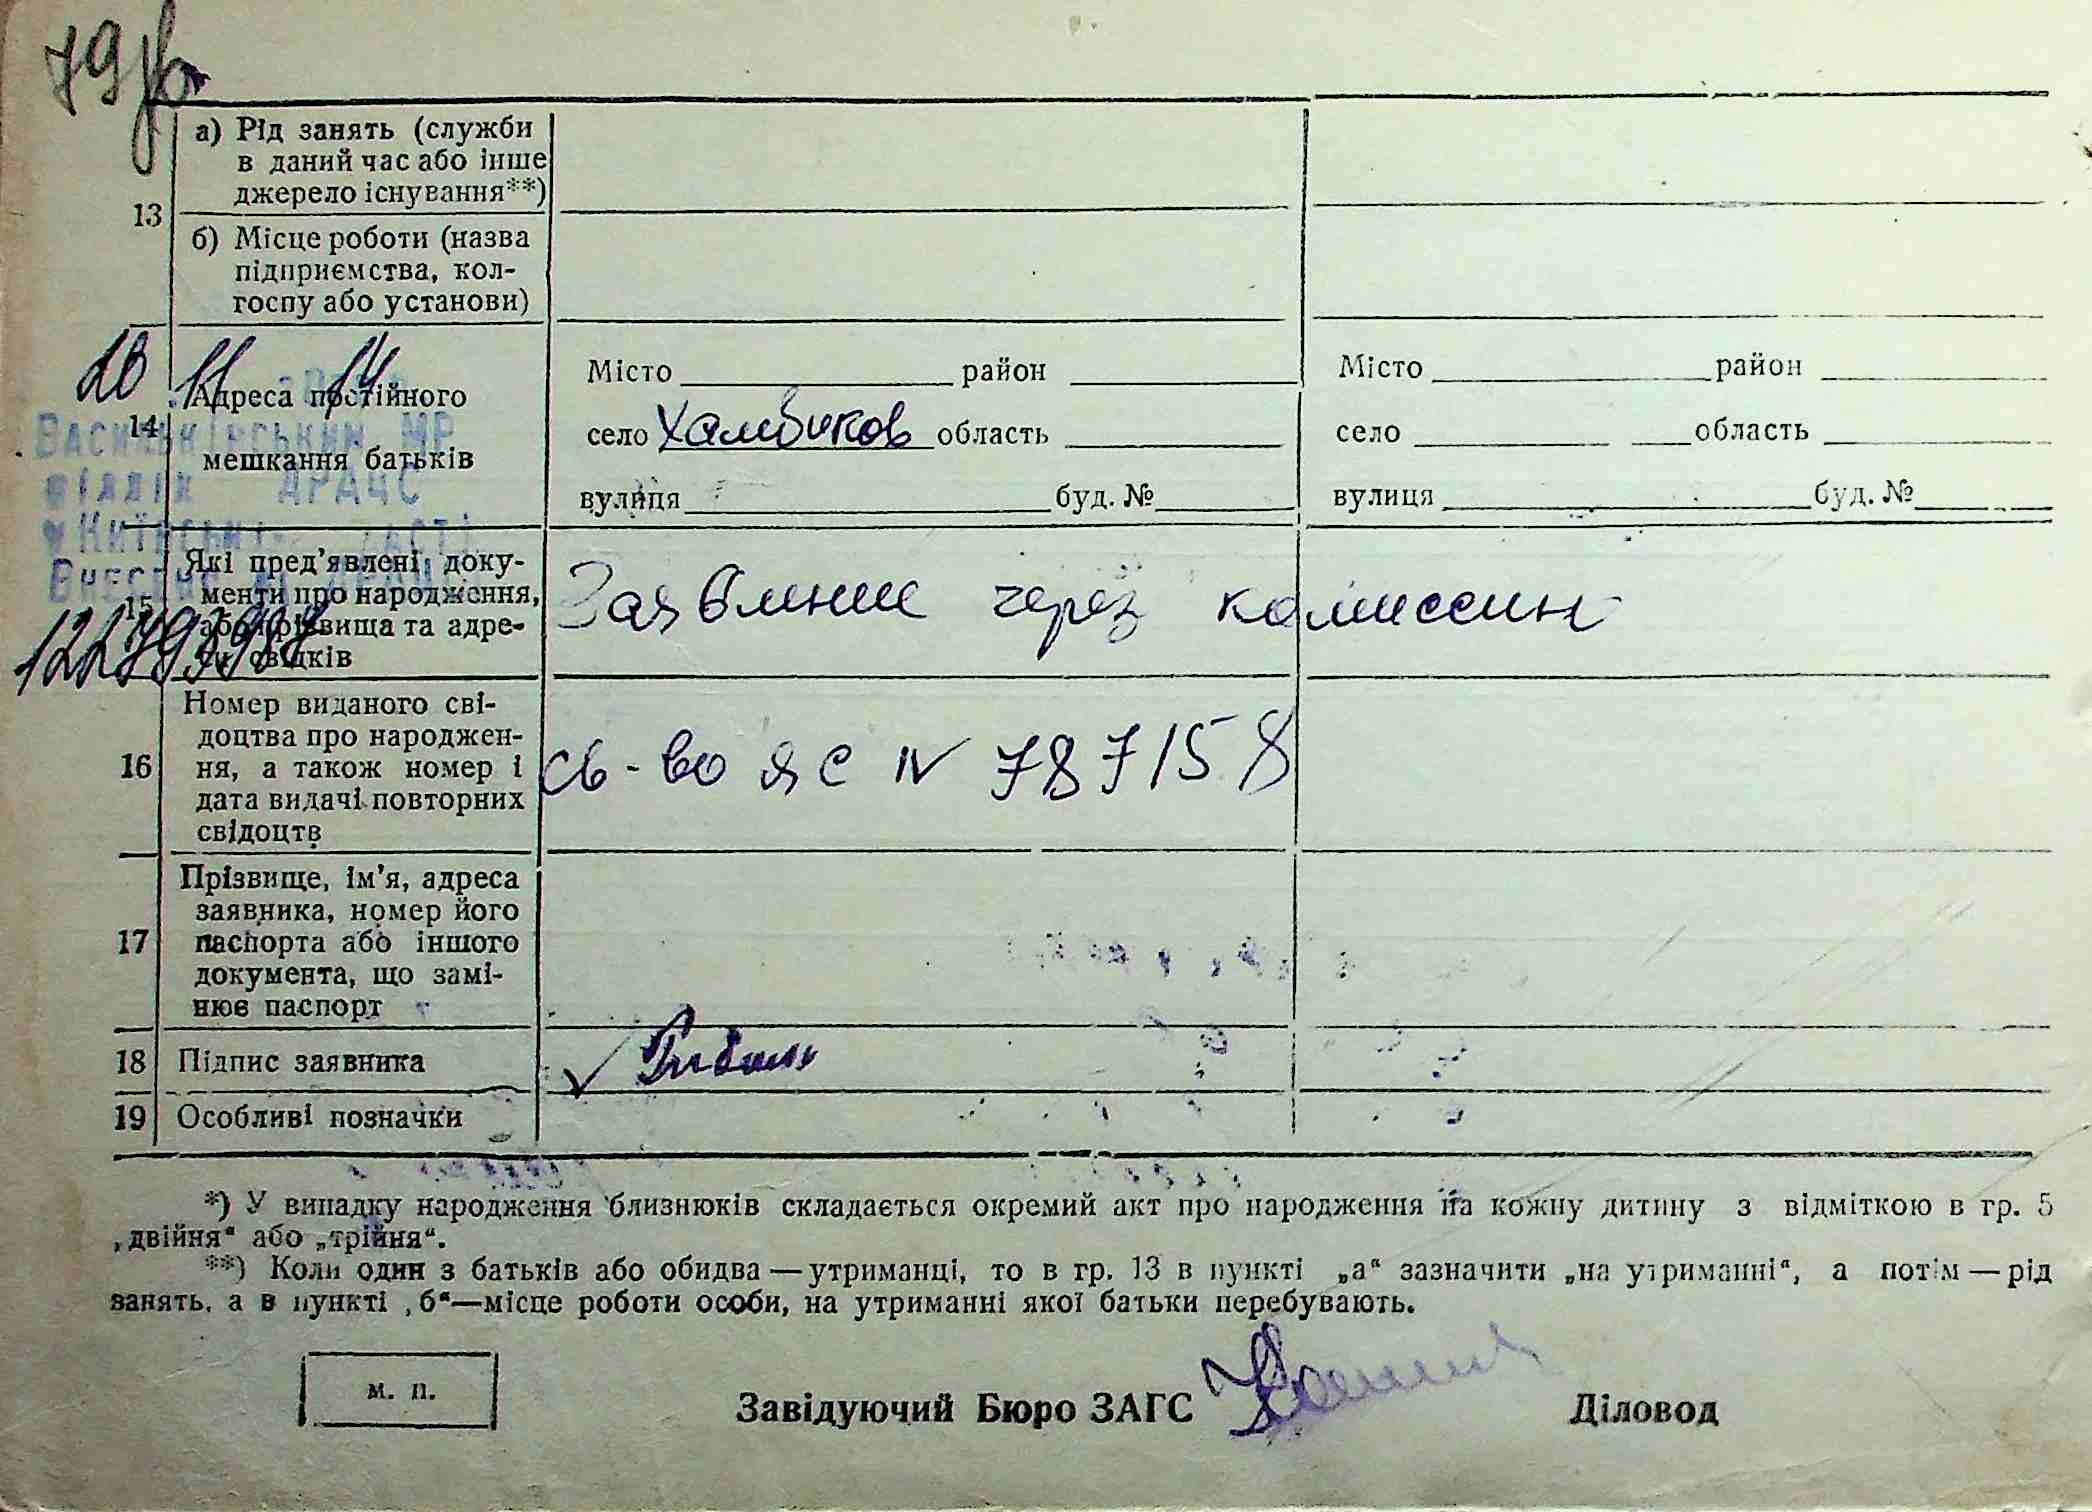 79
13
а) Рід занять (служби
в даний час або інше
джерело існування**)
б) Місце роботи (назва
підприємства, кол-
госпу або установи)
20 11 14
14
Адреса постійного
мешкання батьків
Місто район
село Хамбиков область
вулиця буд. №
Місто район
село область
вулиця буд. №
Васильківським МР
відділ ДРАЦС
15
Які пред’явлені доку-
менти про народження,
або прізвища та адре-
си свідків
Заявление через комиссию
16
Номер виданого сві-
доцтва про народжен-
ня, а також номер і
дата видачі повторних
свідоцтв
св-во яс № 787158
17
Прізвище, ім’я, адреса
заявника, номер його
паспорта або іншого
документа, що замі-
нює паспорт
18
Підпис заявника
19
Особливі позначки
*) У випадку народження близнюків складається окремий акт про народження на кожну дитину з відміткою в гр. 5
„двійня“ або „трійня“.
**) Коли один з батьків або обидва — утриманці, то в гр. 13 в пункті „а“ зазначити „на утриманні“, а потім — рід
занять, а в пункті „б“ — місце роботи особи, на утриманні якої батьки перебувають.
м. п.
Завідуючий Бюро ЗАГС
Діловод